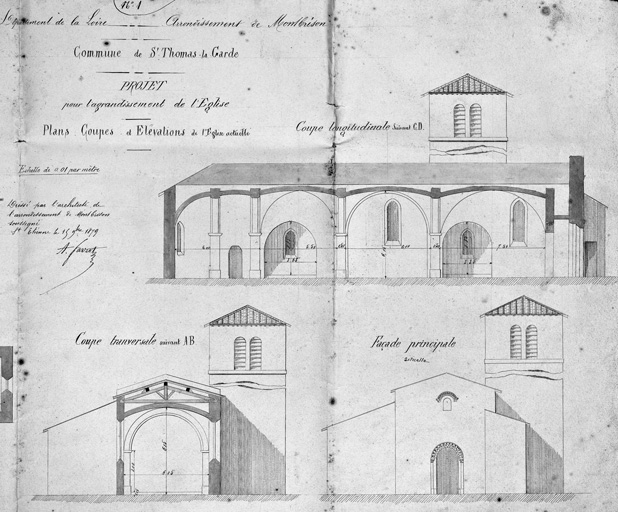 N° 1
Département de la Loire Arrondissement de Montbrison
Commune de St Thomas-la Garde
PROJET
pour l'agrandissement de l'Eglise
Plans Coupes et Elévations de l'Eglise actuelle
Echelle de 0.01 par mètre
Dressé par l'architecte de
l'arrondissement de Montbrison
soussigné
St Etienne le 15 1879
A. Favrot
Coupe longitudinale suivant C.D.
Coupe transversale suivant A.B.
Façade principale
actuelle